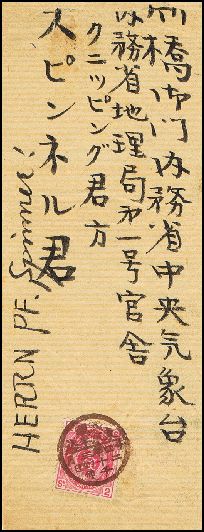 竹橋御門内務省中央気象台
内務省地理局第一号官舎
クニッピング君方
スピンネル君
HERRN PF. Spinner.